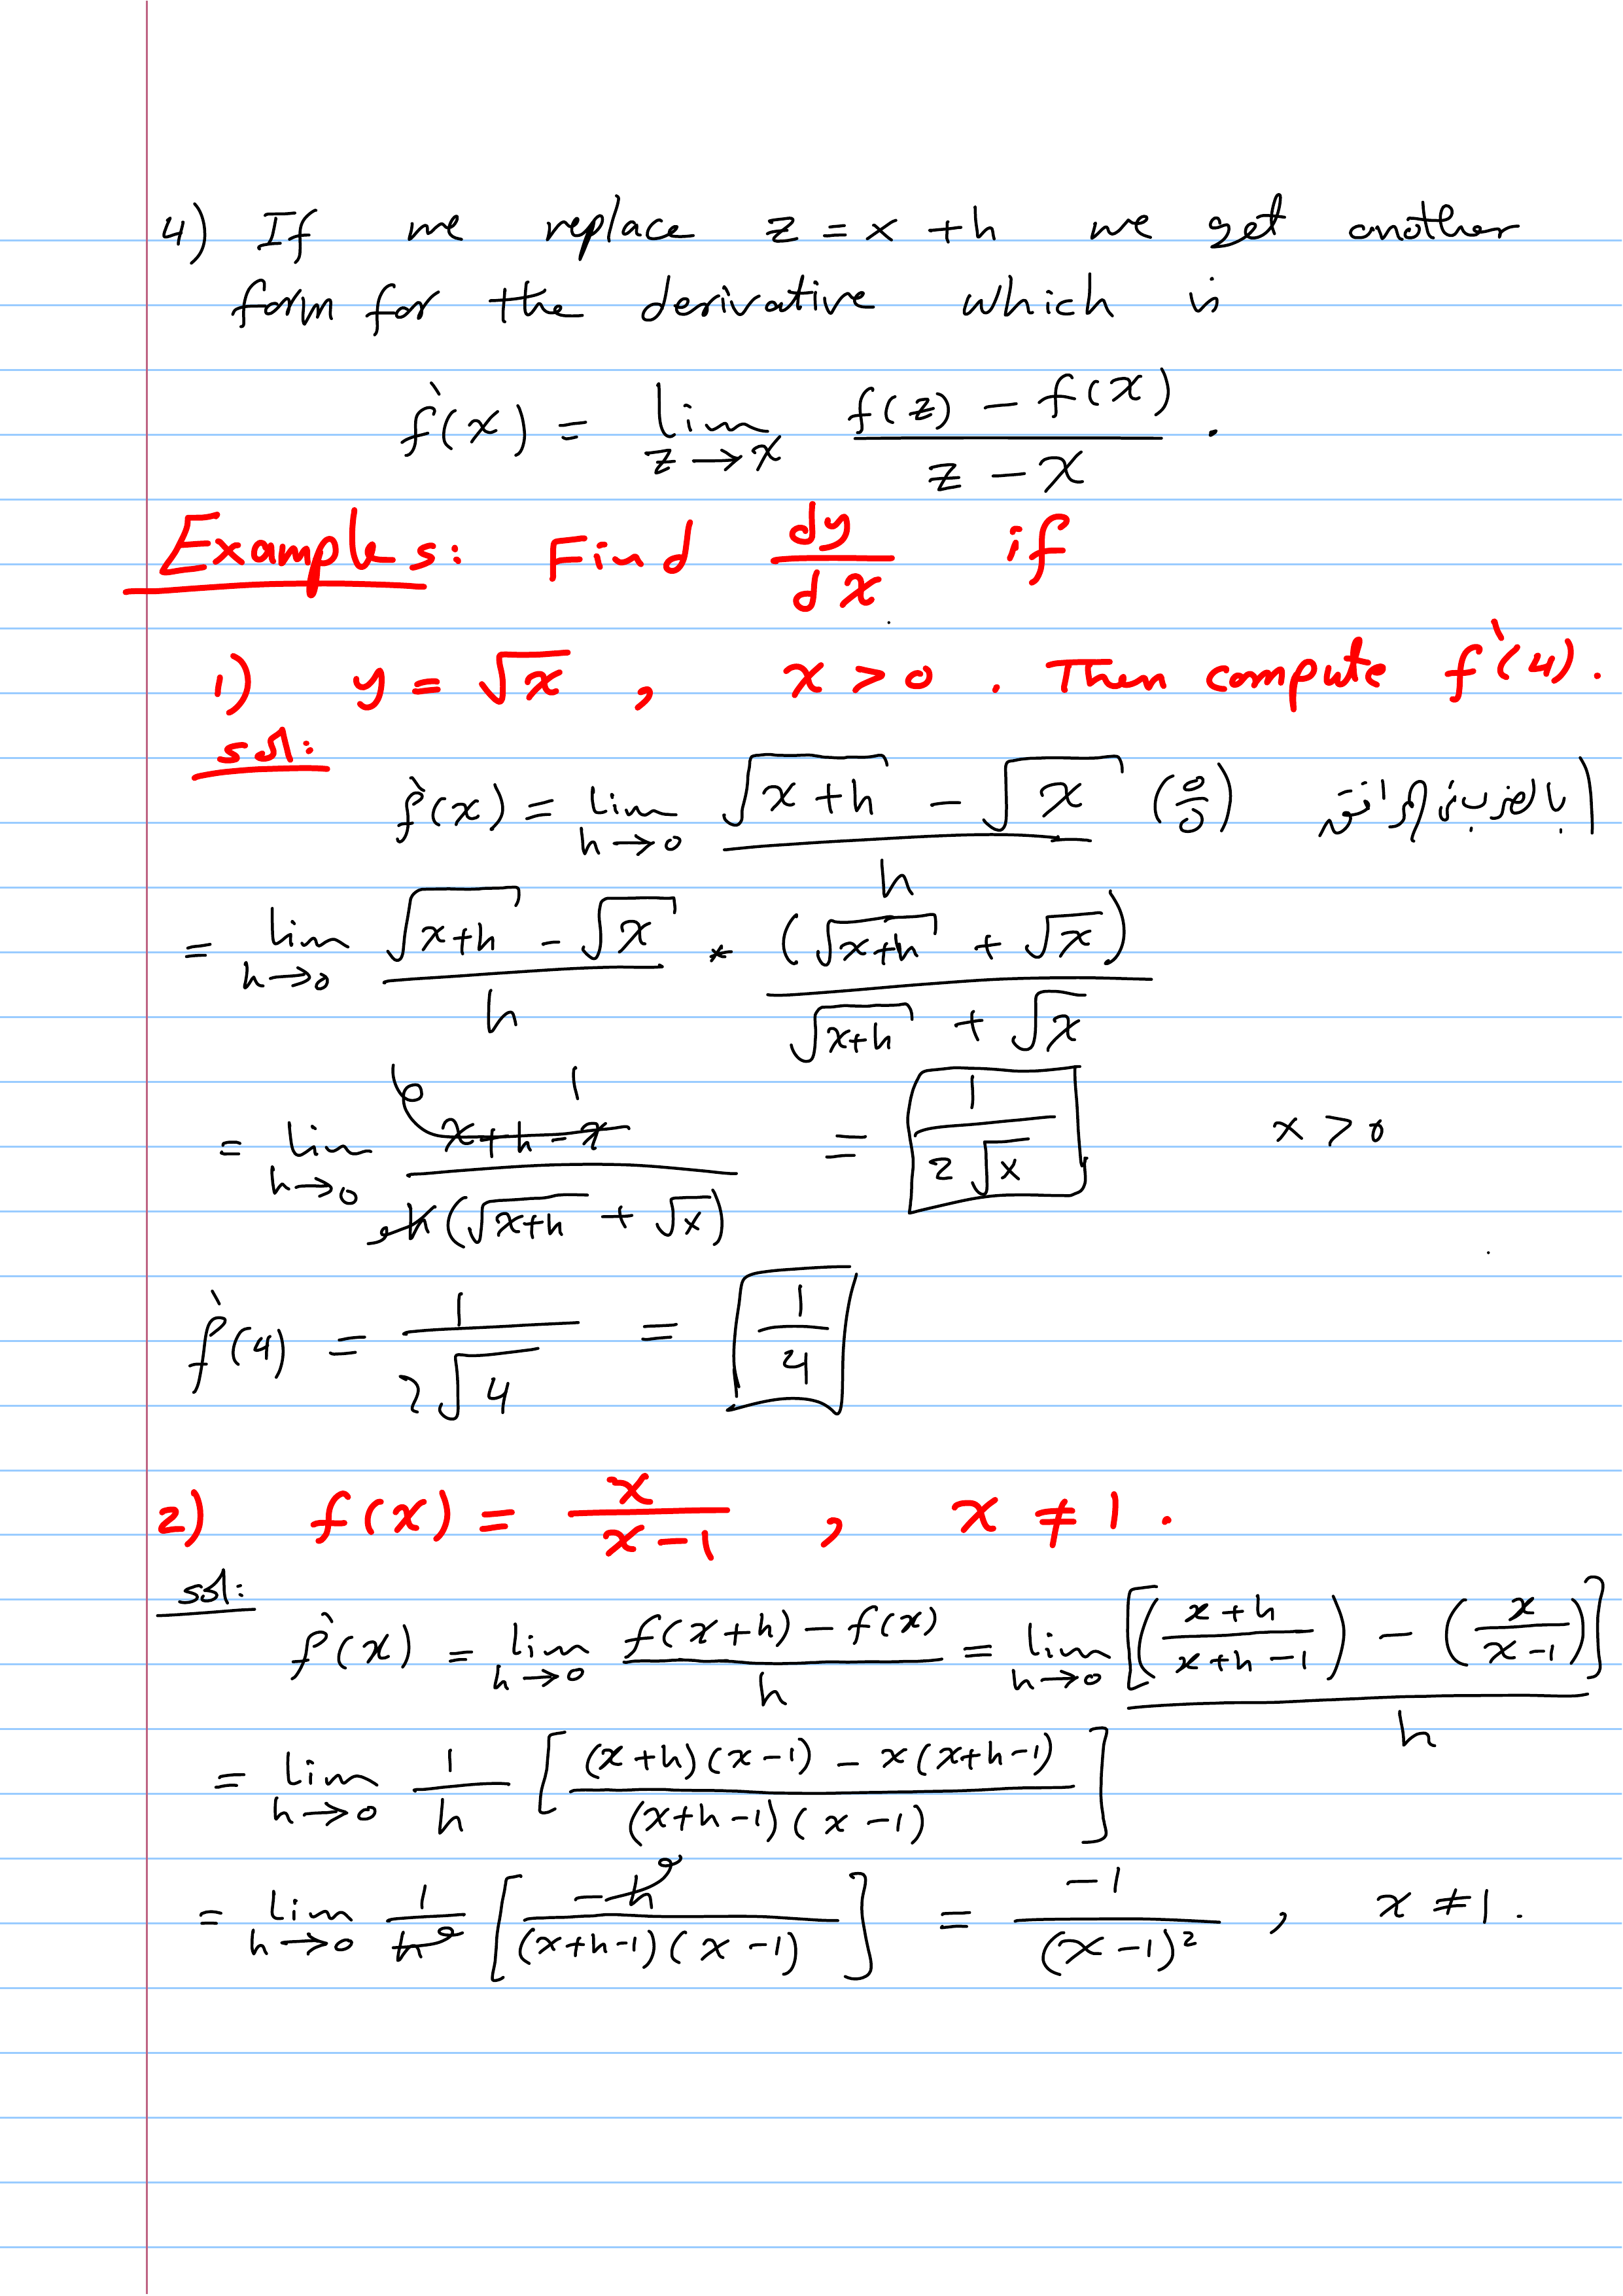 4) If we replace z = x + h we get another
form for the derivative which is
f'(x) = lim_{z→x} (f(z) - f(x)) / (z - x) .
Examples: Find dy/dx if
1) y = √x , x > 0 . Then compute f'(4).
sol:
f'(x) = lim_{h→0} (√(x+h) - √x) / h (0/0)
= lim_{h→0} (√(x+h) - √x) / h * (√(x+h) + √x) / (√(x+h) + √x)
= lim_{h→0} (x+h-x) 1 / (h(√(x+h) + √x)) = 1 / (2√x) x > 0
f'(4) = 1 / (2√4) = 1/4
2) f(x) = x / (x-1) , x ≠ 1 .
sol:
f'(x) = lim_{h→0} (f(x+h) - f(x)) / h = lim_{h→0} [((x+h) / (x+h-1)) - (x / (x-1))] / h
= lim_{h→0} 1/h [((x+h)(x-1) - x(x+h-1)) / ((x+h-1)(x-1))]
= lim_{h→0} 1/h [-h / ((x+h-1)(x-1))] = -1 / (x-1)² , x ≠ 1 .